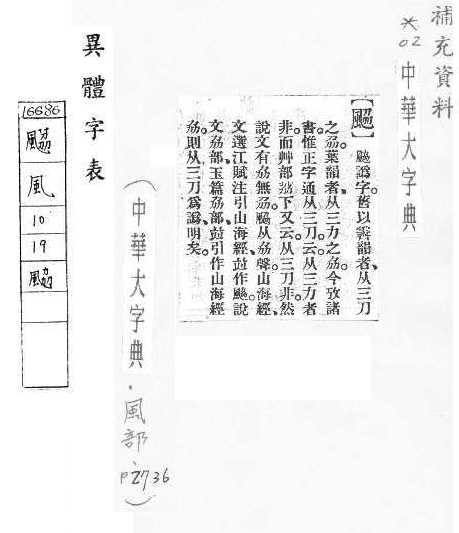 補充資料
*02 中華大字典
【⿺風刕】䬅譌字。舊以辨韻者、从三刀
之刕。葉韻者、从三力之劦。今攷諸
書惟正字通从三刀。云从三力者
非。而艸部荔下又云。从三刀非。然
說文有劦無刕。䬅从劦聲。山海經、
文選江賦注引山海經、竝作䬅。說
文劦部、玉篇劦部、竝引作山海經
劦。則从三刀為譌、明矣。
(中華大字典·風部、P2736)
異體字表
16686
⿺風刕
風
10
19
⿺風刕